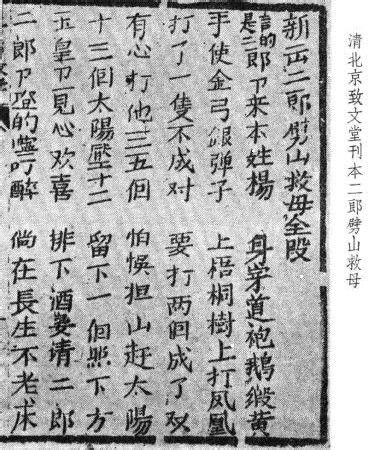 清北京致文堂刊本二郎劈山救母
新出二郎劈山救母全段
言的是二郎卩来本姓楊 身穿道袍鹅缎黄
手使金弓銀弹子 上梧桐樹上打凤凰
打了一隻不成对 要打两個成了双
有心打他三五個 怕悮担山赶太陽
十三個太陽壓十二 留下一個照下方
玉皇卩一見心欢喜 排下酒宴请二郎
二郎卩的叮醉 倘在長生不老床